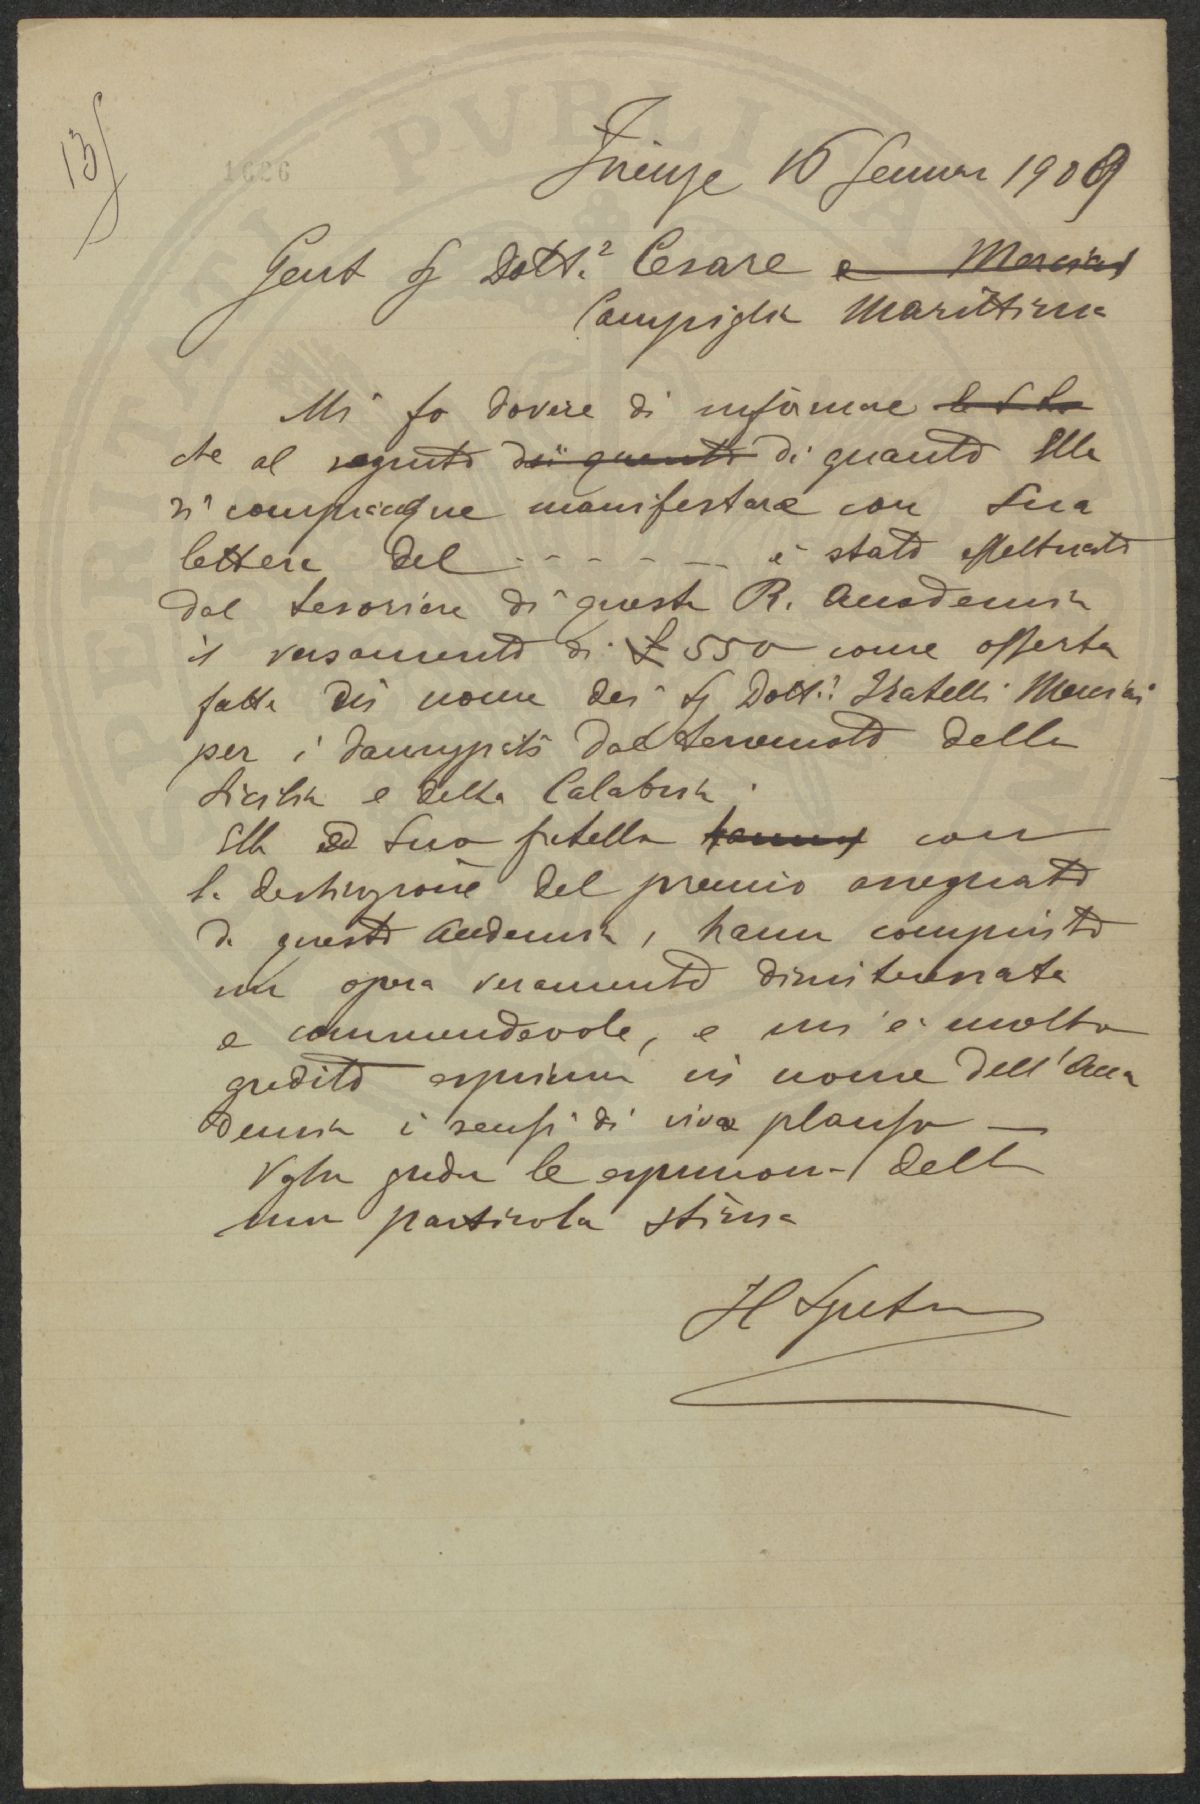 13
1626
Firenze 16 Gennaio 1909
Gent Sig Dott.r Cesare e
Campiglia Marittima
Mi fo dovere di informare
che al seguito dei quanto di quanto Ella
si compiacque manifestare con Sua
lettera del - - - - - è stato effettuato
dal tesoriere di questa R. Accademia
il versamento di £ 550 come offerta
fatta in nome dei Sig Dott.i Fratelli
per i danneggiati dal terremoto della
Sicilia e della Calabria.
Ella ed Suo fratello hanno con
la destinazione del premio assegnato
da questa Accademia, hanno compiuto
un opera veramente disinteressata
e commendevole, e mi è molto
gradito esprimere in nome dell'Acca
demia i sensi di viva plauso —
Voglia gradire le espressioni della
mia particolare stima
Il Segretario